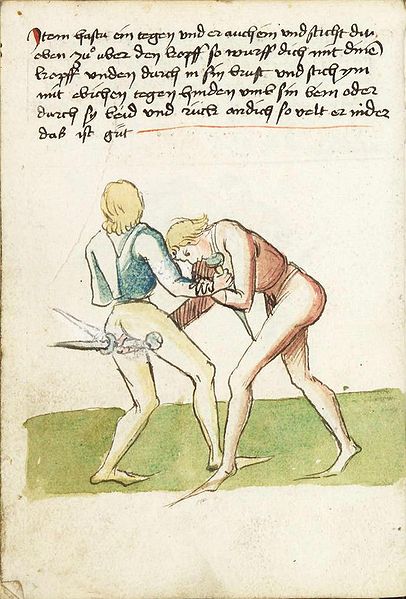 Item hastu ein tegen und er auch ein und sticht dir
oben zuͦ ober den kopff so wurff dich mit dinē
kopff unden durch in sin brust und stich ym
mit ebichen tegen hinden umb sin bein oder
durch sy beid und ruck an dich so velt er nider
das ist guͦt